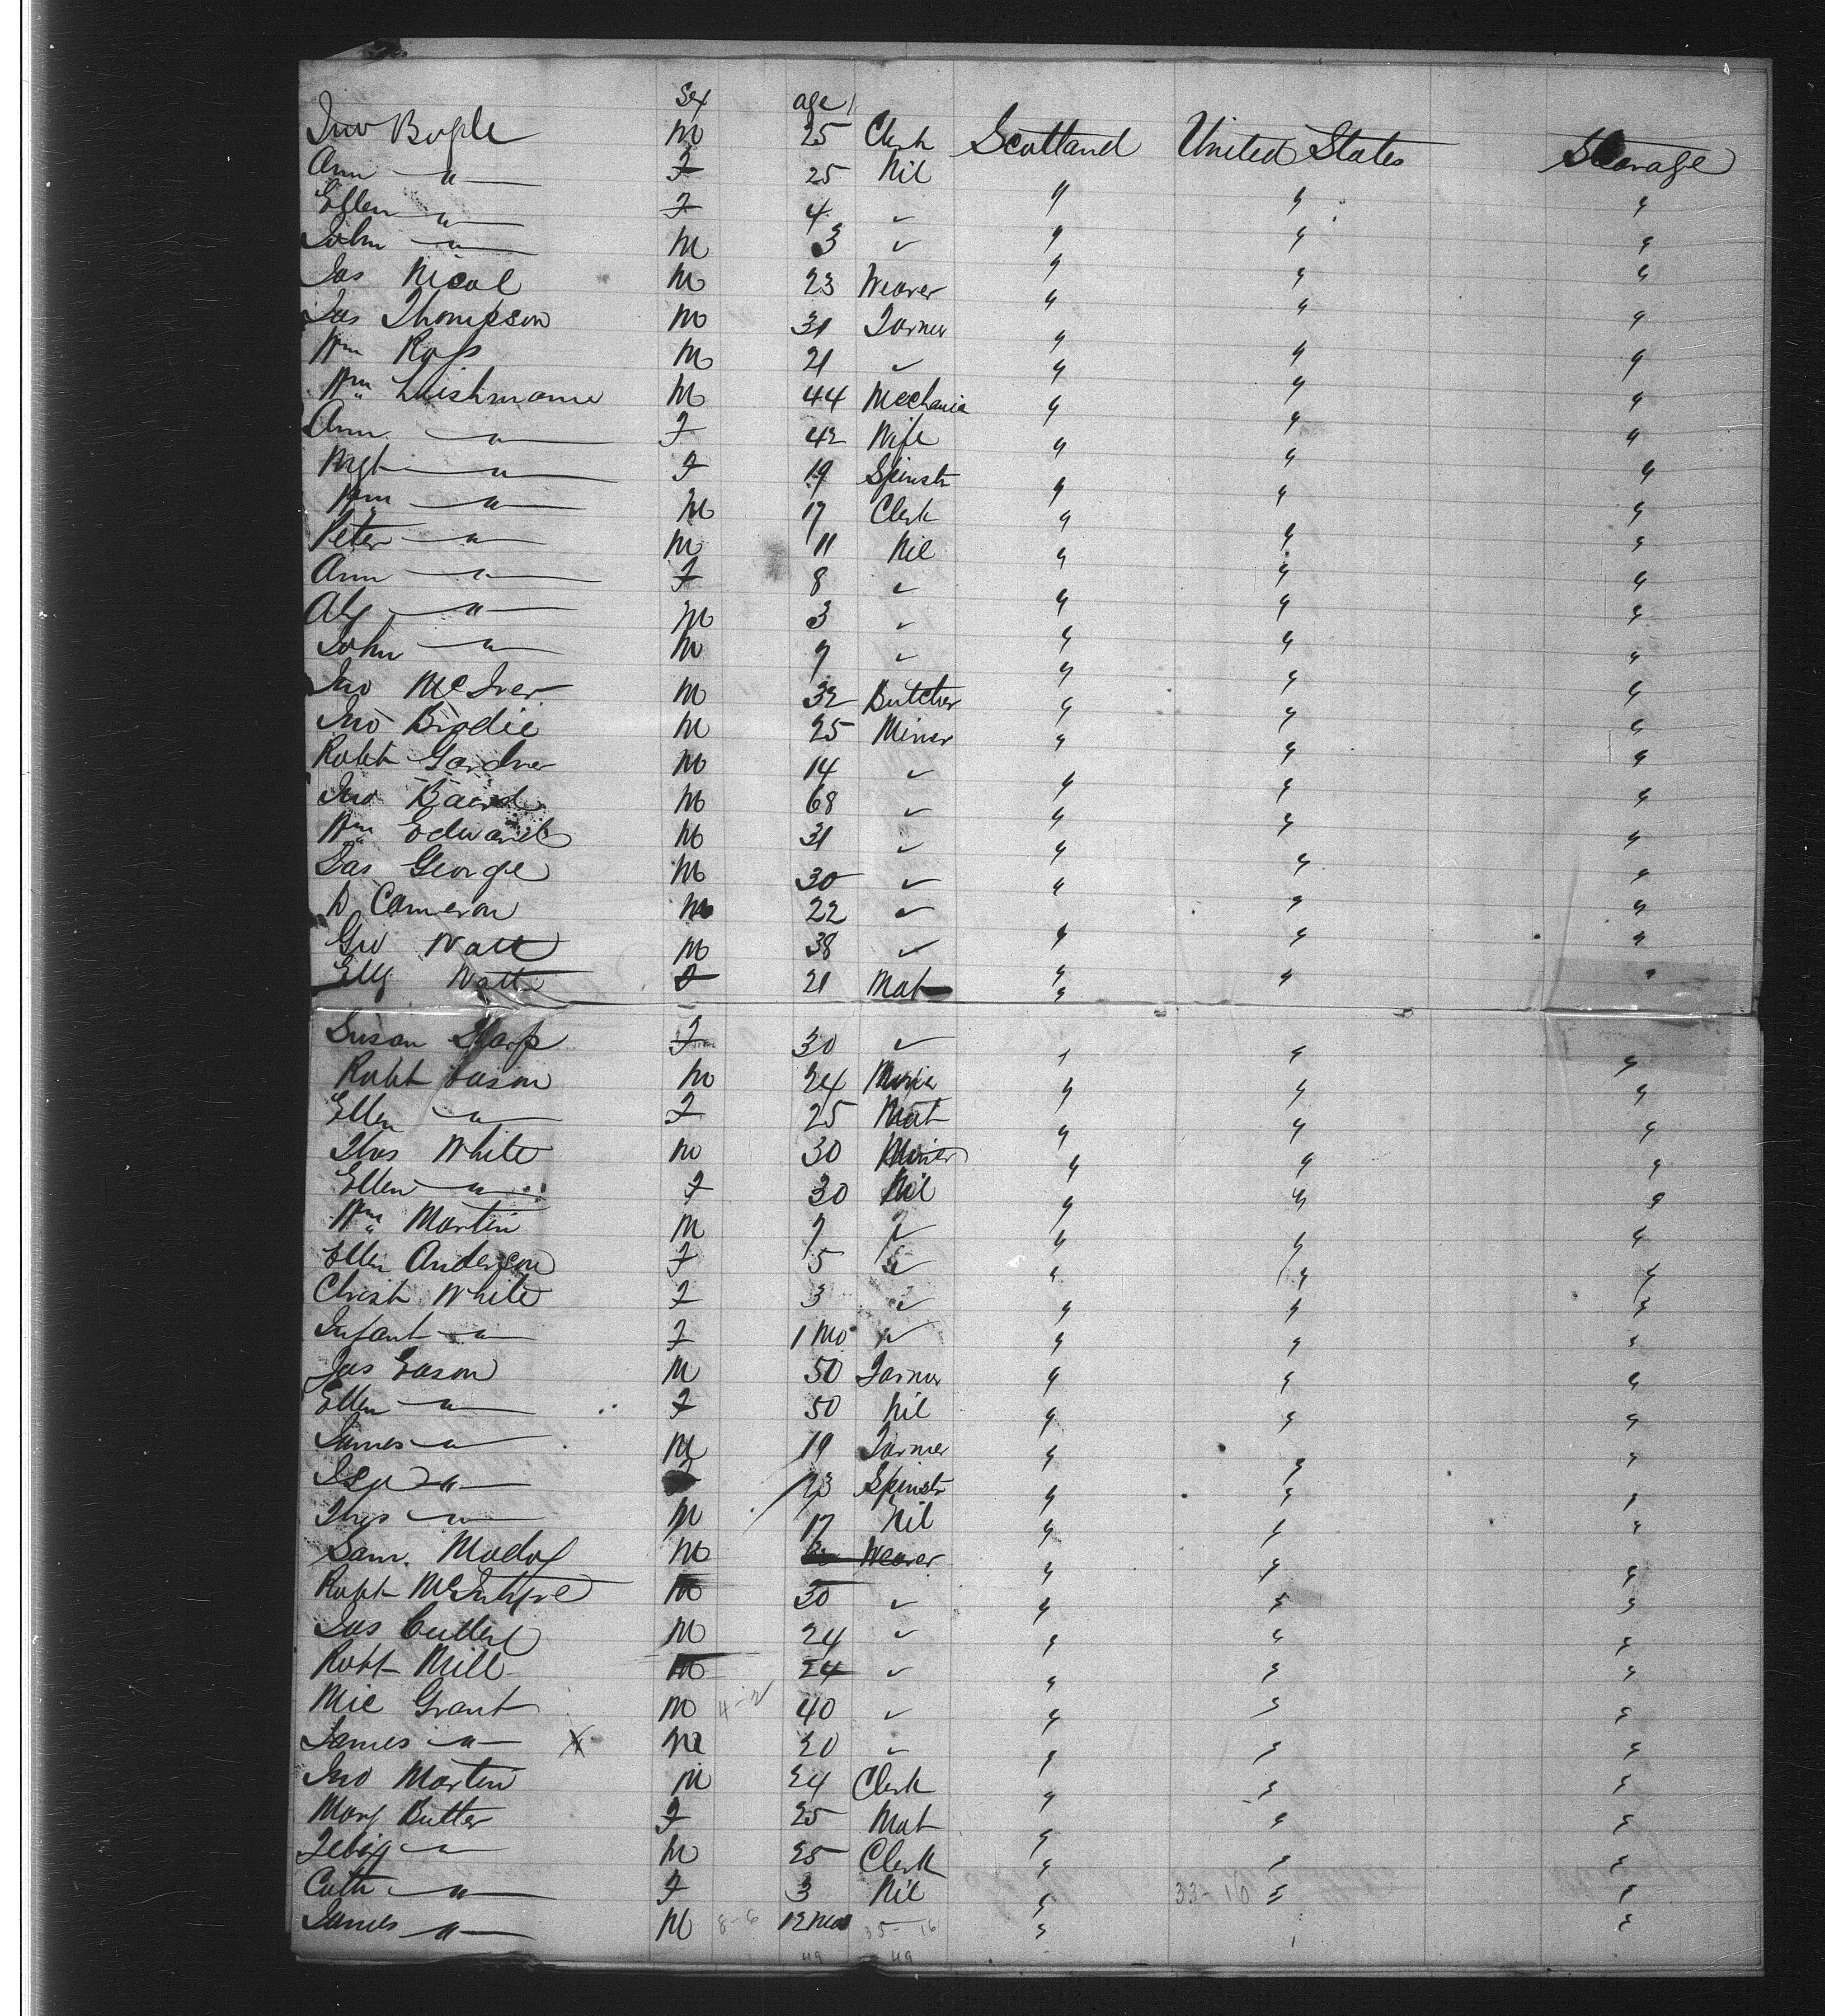 Sex age
Jno Bogle M 25 Clerk Scotland United States Steerage
Ann " F 25 Nil " " "
Ellen " F 4 " " " "
John " M 3 " " " "
Jas Nicol M 23 Weaver " " "
Jas Thompson M 31 Farmer " " "
Wm Ross M 21 " " " "
Wm Leishmann M 44 Mechanic " " "
Ann " F 42 Wife " " "
Mgt " F 19 Spinstr " " "
Wm " M 17 Clerk " " "
Peter " M 11 Nil " " "
Ann " F 8 " " " "
Alx " M 3 " " " "
John " M 7 " " " "
Jno McIver M 32 Butcher " " "
Jno Brodie M 25 Miner " " "
Robt Gardner M 14 " " " "
Jno Baird M 68 " " " "
Wm Edwards M 31 " " " "
Jas George M 30 " " " "
D Cameron M 22 " " " "
Geo Watt M 38 " " " "
Watt F 21 Mat " " "
Susan Sharp F 30 " " " "
Robt Eason M 24 " " "
Ellen " F 25 Mat " " "
Thos White M 30 Miner " " "
Ellen " F 30 Nil " " "
Wm Martin M 7 " " " "
Ellen Anderson F 5 " " " "
Christ White F 3 " " " "
Infant " F 1 Mo " " " "
Jas Eason M 50 Farmer " " "
Ellen " F 50 Nil " " "
James " M 19 Farmer " " "
Isa " F 23 Spinstr " " "
Thos " M 17 Nil " " "
Sam. M Weaver " " "
Robt McIntyre M 30 " " " "
Jas M 24 " " " "
Robt Mill M 24 " " " "
Mic Grant M 40 " " " "
James " X M 20 " " " "
Jno Martin M 24 Clerk " " "
Mary Butter F 25 Mat " " "
" M 25 Clerk " " "
Cath " F 3 Nil " 33-10 " "
James " M 8-6 12 Mos 35-16 " "
49 49